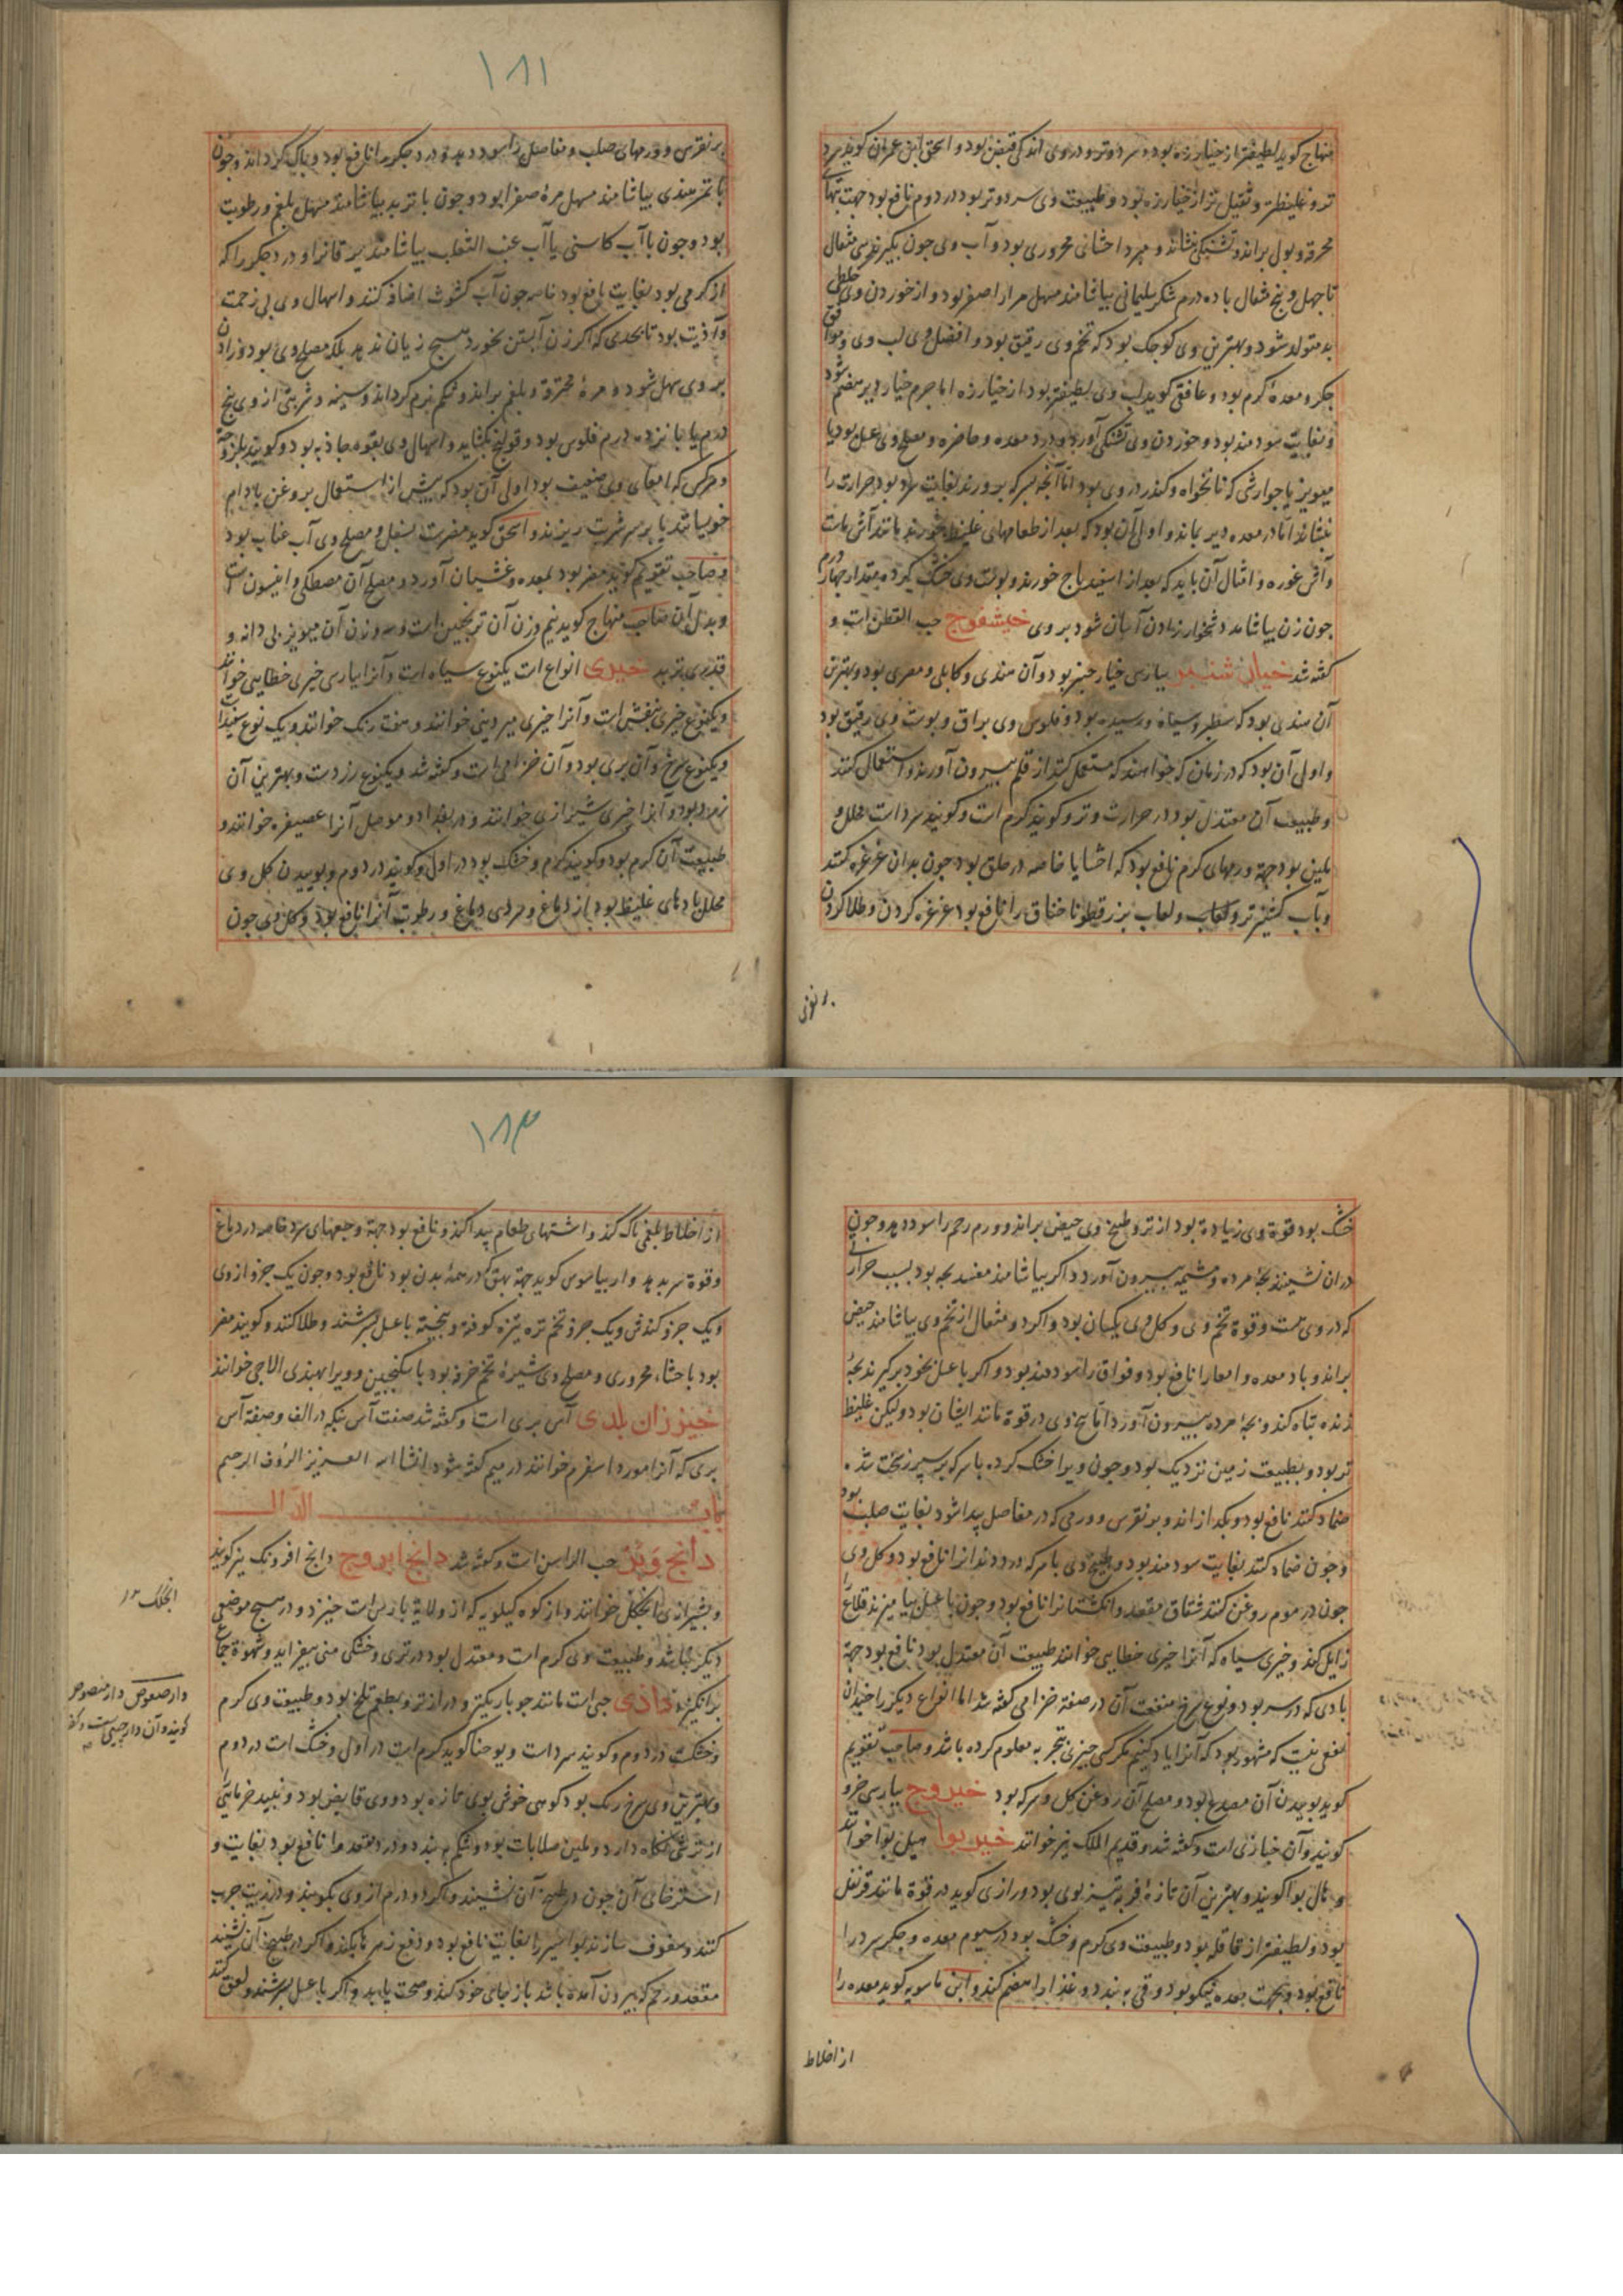 منهاج کوید لطیفتر از خیارزه بود و سرد و تر و در وی اندکی قبض بود و اسحق ابن عمران کوید سرد
تر و غلیظتر و ثقیل تر از خیارزه بود و طبیعت وی سرد و تر بود در دوم نافع بود جهت تبهای
محرقه و بول براند و تشنکی بنشاند و مبرد احشائی محروری بود و آب وی چون بکیرند سی مثقال
تا چهل و پنج مثقال با ده درم شکر سلیمانی بیاشامند مسهل مرار اصفر بود و از خوردن وی خلطی
بد متولد شود و بهترین وی کوچک بود که تخم وی رقیق بود و افضل وی لب وی و موافق
جکر و معدۀ کرم بود و غافقی کوید لب وی لطیفتر بود از خیارزه اما جرم خیار دیر هضم شود
و بغایت سودمند بود و خوردن وی تشنکی آورد و درد معده و خاصره و مصلح وی عسل بود یا
مویز یا جوارشی که نانخواه و کندر در وی بود اما آنچه بسرکه پرورند بغایت سرد بود حرارت را
بنشاند اما در معده دیر بماند و اولی آن بود که بعد از طعامهای غلیظ خورند مانند آش ماست
و آش غوره و امثال آن باید که بعد از اسفیدباج خورند و پوست وی خشک کرده بمقدار چهار درم
چون زن بیاشامد دشخوار زادن آسان شود بر وی خیشفوج حب القطن است و
کفته شد خیار شنبر بپارسی خیار چنبر بود و آن هندی و کابلی و مصری بود و بهترین
آن هندی بود که سطبر و سیاه و رسیده بود و فلوس وی براق و پوست وی رقیق بود
و اولی آن بود که در زمان که خواهند که مستعمل کنند از قلم بیرون آورند و استعمال کنند
و طبیعت آن معتدل بود در حرارت و تر و کویند کرم است و کویند سرد است محلل و
ملین بود جهة ورمهای کرم نافع بود که احشا یا خاصه در حلق بود چون بدان غرغره کنند
و بآب کشنیز تر و لعاب بزرقطونا خناق را نافع بود غرغره کردن و طلا کردن
بر نقرس
۱۸۱
بر نقرس و ورمهای صلب و مفاصل را سود دهد و درد جکر را نافع بود و پاک کرداند و چون
با تمر هندی بیاشامند مسهل مرۀ صفرا بود و چون با تربد بیاشامند مسهل بلغم و رطوبت
بود و چون با آب کاسنی یا آب عنب الثعلب بیاشامند یرقانرا و درد جکر را که
از کرمی بود بغایت نافع بود خاصه چون آب کشوث اضافه کنند و اسهال وی بی زحمت
و اذیت بود تا بحدی که اکر زن آبستن بخورد هیچ زیان ندهد بلکه مصلح وی بود و زادن
بر وی سهل شود و مرۀ محترقه و بلغم براند و شکم نرم کرداند و سینه و شربتی از وی پنج
درم یا پانزده درم فلوس بود و قولنج بکشاید و اسهال وی بقوه جاذبه بود و کویند بلزوجة
و هرکس که امعای وی ضعیف بود اولی آن بود که پیش از استعمال بروغن بادام
خوبیانند یا بر سر شربت ریزند و اسحق کوید مضرست بسفل و مصلح وی آب عناب بود
و صاحب تقویم کوید مضر بود بمعده و غثیان آورد و مصلح آن مصطکی و انیسون است
و بدل آن صاحب منهاج کوید نیم وزن آن ترنجبین است و سه وزن آن مویز بی دانه و
قدری تربد خیری انواع است یکنوع سیاه است و آنرا بپارسی خیری خطایی خوانند
و یکنوع خیری بنفش است و آنرا خیری میردینی خوانند و هفت رنک خوانند و یک نوع سفید است
و یکنوع سرخ و آن بری بود و آن خزامی است و کفته شد و یکنوع زردست و بهترین آن
زرد بود و آنرا خیری شیرازی خوانند و در بغداد و موصل آنرا عصیفره خوانند و
طبیعت آن کرم بود و کویند کرم و خشک بود در اول و کویند در دوم و بوییدن کل وی
محلل بادهای غلیظ بود از دماغ و سردی دماغ و رطوبت آنرا نافع بود و کل وی چون
خشک بود قوة وی زیاده بود از تر و طبیخ وی حیض براند و ورم رحم را سود دهد و چون
در آن نشینند بچۀ مرده و مشیمه بیرون آورد و اکر بیاشامند مفسد بچه بود بسبب حرارتی
که در وی هست و قوة تخم وی و کل وی یکسان بود و اکر دو مثقال از تخم وی بیاشامند حیض
براند و باد معده و امعا را نافع بود و فواق را سودمند بود و اکر با عسل بخود برکیرند بچۀ
زنده تباه کند و بچۀ مرده بیرون آورد اما بیخ وی در قوة مانند ایشان بود ولیکن غلیظ
تر بود و بطبیعت زمین نزدیک بود و چون ویرا خشک کرده با سرکه بر سپرز سخت شده
ضماد کنند نافع بود و بکدازاند و بر نقرس و ورمی که در مفاصل پیدا شود بغایت صلب بود
و چون ضماد کنند بغایت سودمند بود و طبیخ وی با سرکه درد دندانرا نافع بود و کل وی
چون در موم روغن کنند شقاق مقعد و انکشتانرا نافع بود و چون با عسل بیامیزند قلاع را
زایل کند و خیری سیاه که آنرا خیری خطایی خوانند طبیعت آن معتدل بود نافع بود جهة
بادی که در سر بود و نوع سرخ منفعت آن در صفة خزامی کفته شد اما انواع دیکر را چندان
نفعی نیست که مشهور بود که آنرا یاد کنیم مکر کسی چیزی بتجربه معلوم کرده باشد و صاحب تقویم
کوید بوییدن آن مصدع بود و مصلح آن روغن کل و سرکه بود خیروج بپارسی خرو
کویند و آن خبازی است و کفته شد و قدیم الملک نیز خوانند خیربوا هیل بوا خوانند
و هال بوا کویند و بهترین آن تازۀ فربه تیز بوی بود و رازی کوید در قوة مانند قرنفل
بود و لطیفتر از قاقله بود و طبیعت وی کرم و خشک بود در سیوم معده و جکر سرد را
نافع بود و بجهت معده نیکو بود و قی به بندد و غذا را هضم کند و ابن ماسویه کوید معده را
از اخلاط
۱۸۳
از اخلاط بلغمی پاک کند و اشتهای طعام پیدا کند و نافع بود جهة وجعهای سرد خاصه در دماغ
و قوة سر بدهد و اریباسوس کوید جهة بهق که در همۀ بدن بود نافع بود و چون یک جزو از وی
و یک جزو کندش و یک جزو تخم تره تیزه کوفته و بیخته با عسل بسرشند و طلا کنند و کویند مضر
بود باحشاء محروری و مصلح وی شیرۀ تخم خرفه بود با سکنجبین و ویرا بهندی الاچی خوانند
خیزران بلدی آس بری است و کفته شد صفت آس نیکه در الف و صفة آس
بری که آنرا مورد اسفرم خوانند در میم کفته شود انشاالله العزیز الرؤف الرحیم
باب الدال
دانج ویز حب الراسن است و کفته شد دانج ابروج دانج افرونک نیز کویند
و بشیرازی انجکک خوانند و از کوه کیلویه که از ولایة پارس است خیزد و در هیچ موضعی
دیکر نباشد و طبیعت وی کرم است و معتدل بود در تری و خشکی منی بیفزاید و شهوة جماع
برانکیزد دادی حبی است مانند جو باریکتر و درازتر و بطعم تلخ بود و طبیعت وی کرم
و خشکست در دوم و کویند سرد است و یوحنا کوید کرم است در اول و خشک است در دوم
و بهترین وی سرخ رنک بود که وی خوش بوی تازه بود و وی قابض بود و نبید خرمائی را
از ترشی نکاه دارد و ملین صلابات بود و شکم به بندد و درد مقعد را نافع بود بغایت و
استرخای آن چون در طبیخ آن نشینند و اکر دو درم از وی بکوبند و در زیت چرب
کنند و سفوف سازند بواسیر را بغایت نافع بود و دفع زهر بکند و اکر در طبیخ آن نشینند
مقعد و رحم که بیرون آمده باشد باز جای خود کند و صحت یابد و اکر با عسل بسرشند و لعق کنند
انجکک
دارصعوص دارمنصوص
کویند و آن دارچینی است